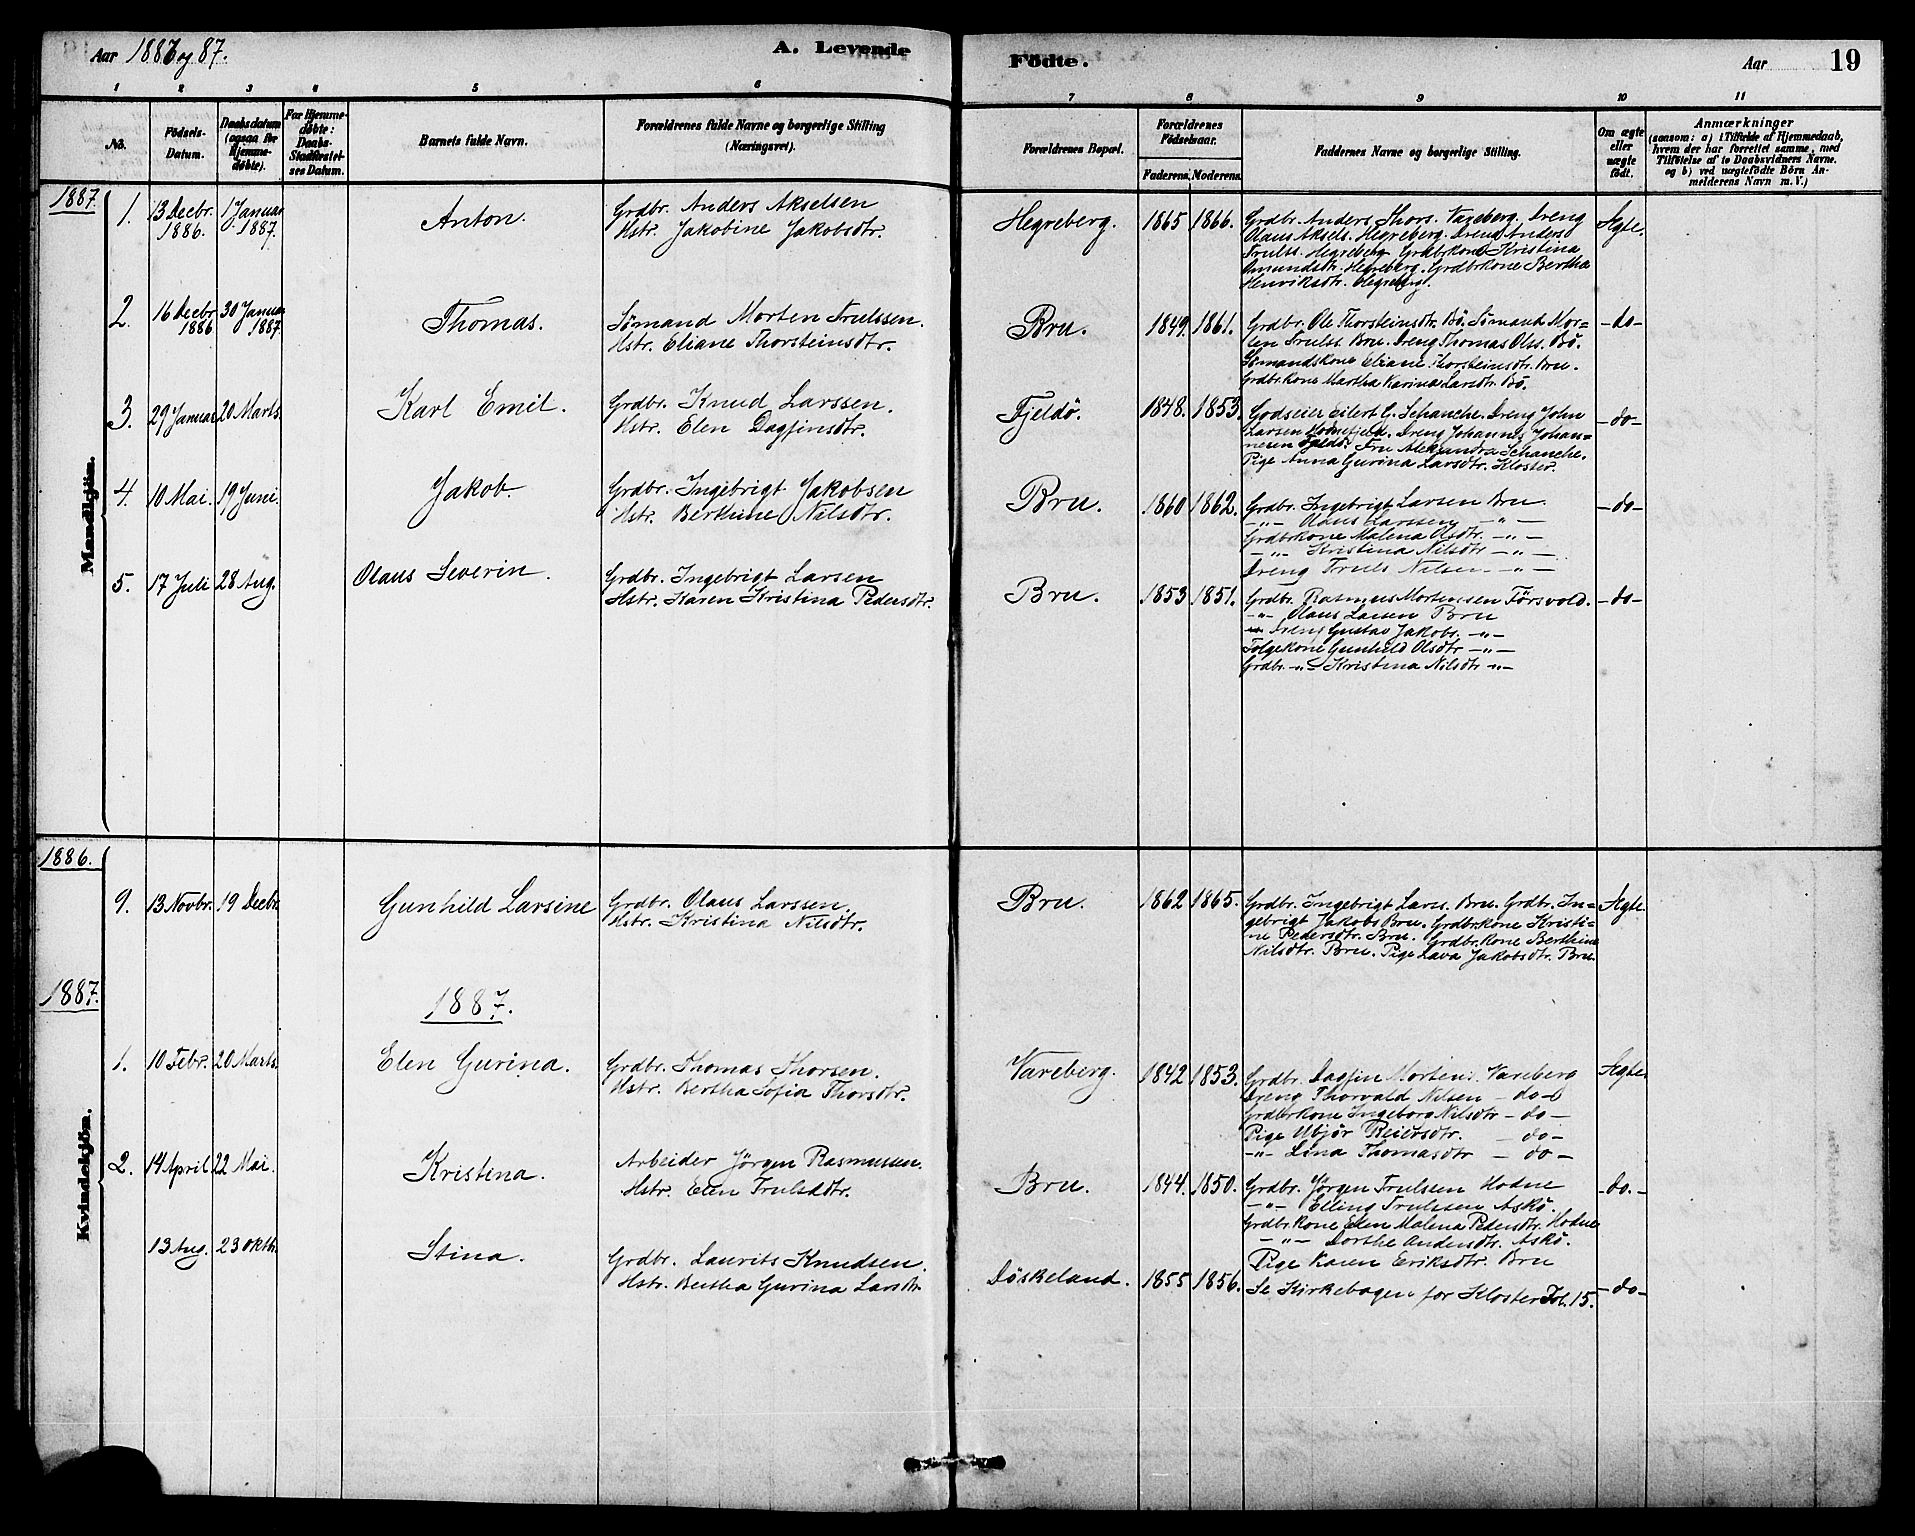 Aar 1886 og 87. A. Levende
Födte. Aar 19
1 2 3 4 5 6
7 8 9 10 11
No. Födsels-Datum. Daabsdatum (ogsaa for Hjemmedøbte). For Hjemmedøbte: Daabs-Stadfæstelses Datum. Barnets fulde Navn. Forældrenes fulde Navne og borgerlige Stilling (Næringsvei).
Forældrenes Bopæl. Forældrenes Födselsaar. Faderens. Moderens. Faddernes Navne og borgerlige Stilling. Om ægte eller uægte födt. Anmærkninger (saasom: a) i Tilfælde af Hjemmedaab, hvem der har forrettet samme, med Tilföielse af to Daabsvidners Navne. og b) ved uægtefödte Börn Anmelderens Navn m. V.)
Mandkjön.
1887.
1. 13 Decbr. 1886. 1 Januar 1887. Anton. Grdbr. Anders Akselsen
Hstr. Jakobine Jakobsdtr.
Hegreberg. 1865 1866. Grdbr. Anders Thors. Vareberg. Dreng
Olaus Aksels. Hegreberg. Dreng Anders
Trulss. Hegreberg Grdbrkone Kristina
Amundsdtr. Hegreberg. Grdbrkone Bertha
Henriksdtr. Hegreberg.
Ægte.
2. 16 Decbr. 1886 30 Januar 1887. Thomas. Sømand Morten Trulssen.
Hstr. Eliane Thorsteinsdtr.
Bru. 1849. 1861. Grdbr. Ole Thorsteinsdtr. Bö. Sømand Mor=
ten Trulss. Bru. Dreng Thomas Olss. Bö.
Sømandskone Eliane Thorsteinsdtr. Bru.
Grdbrkone Martha Karina Larsdtr. Bö.
-do-
3. 29 Januar 20 Marts. Karl Emil. Grdbr. Knud Larssen.
Hstr. Elen Dagfinsdtr.
Fjeldö. 1848. 1853. Godseier Eilert G. Schanche. Dreng John
Larsen Hodnefjeld. Dreng Johannes Johan=
nesen Fjeldö. Fru Aleksandra Schanche.
Pige Anna Gurina Larsdtr. Kloster.
-do-
4 10 Mai. 19 Juni. Jakob. Grdbr. Ingebrigt Jakobsen
Hstr. Berthine Nilsdtr.
Bru. 1860 1862. Grdbr. Ingebrigt Larsen Bru.
-"- Olaus Larssen -"-
Grdbrkone Malena Olsdtr. -"-
-"- Kristina Nilsdtr -"-
Dreng Truls Nilsen -"-
-do-
5. 17 Juli 28 Aug. Olaus Severin. Grdbr. Ingebrigt Larsen
Hstr. Karen Kristina Pedersdtr.
Bru. 1853 1851. Grdbr. Rasmus Mortensen Försvold.
-"- Olaus Larsen Bru
Dreng Gustav Jakobs. -"-
Folgekone Gunhild Olsdtr -"-
Grdbr. -"- Kristina Nilsdtr -"-
-do-
Kvindekjön.
1886.
9. 13 Novbr. 19 Decbr. Gunhild Larsine Grdbr. Olaus Larssen.
Hstr. Kristina Nilsdtr.
Bru. 1862 1865. Grdbr. Ingebrigt Lars. Bru. Grdbr. In=
gebrigt Jakobs Bru. Grdbrkone Kristi=
ne Pedersdtr. Bru. Grdbr.kone Berthine
Nilsdtr. Bru. Pige Lava Jakobsdtr. Bru.
Ægte.
1887. 1887.
1. 10 Febr. 20 Marts. Elen Gurina. Grdbr. Thomas Thorsen.
Hstr. Bertha Sofia Thorsdtr.
Vareberg. 1842 1853. Grdbr. Dagfin Mortens. Vareberg
Dreng Thorvald Nilsen -do-
Grdbrkone Ingeborg Nilsdtr -do-
Pige Ubjör Reiersdtr. -do-
-"- Lina Thomasdtr -do-
Ægte.
2. 14 April 22 Mai. Kristina. Arbeider Jörgen Rasmussen.
Hstr. Elen Trulsdtr.
Bru. 1844. 1850. Grdbr. Jörgen Trulsen Hodne
-"- Elling Trulssen Askö.
Grdbrkone Elen Malena Pedersdtr. Hodne
-"- Dorthe Andersdtr. Askö.
Pige Karen Eriksdtr. Bru
-do.-
13 Aug. 23 Oktbr. Stina. Grdbr. Laurits Knudsen.
Hstr. Bertha Gurina Larsdtr.
Döskeland. 1855 1856. Se Kirkebogen for Kloster Fol. 15.
-do-